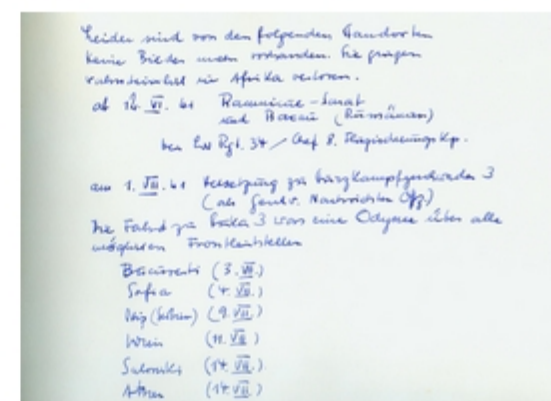 Leider sind von den folgenden Standorten
keine Bilder mehr vorhanden. Sie gingen
wahrscheinlich in Afrika verloren.
ab 12. VI. 41 - Sarat
und Bacau (Rumänien)
bei Ln Rgt. 34 / Chef 8. Kp.
am 1. VII. 41 Versetzung zu 3
(als Nachrichten Offz.)
Die Fahrt zu 3 war eine Odyssee über alle
möglichen Frontleitstellen
Bukarest (3. VII.)
Sofia (4. VII.)
Nis (Serbien) (9. VII.)
Wien (11. VII.)
Saloniki (14. VII.)
Athen (17. VII.)